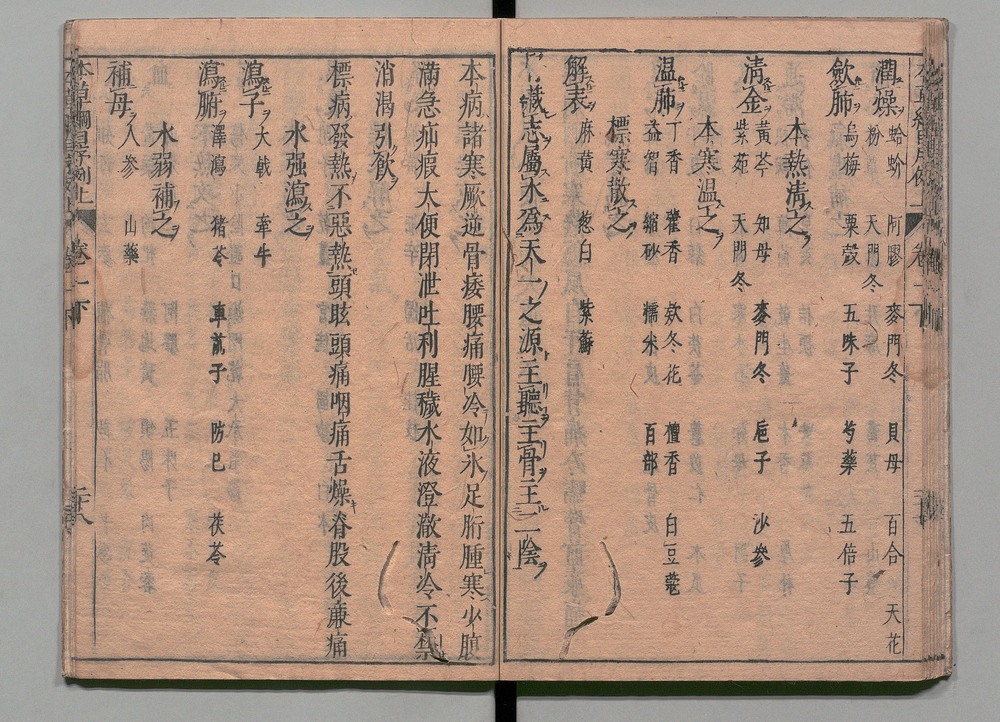 潤燥 蛤蚧 阿膠 麥門冬 貝母 百合 天花
粉 天門冬
歛肺 烏梅 粟殼 五味子 芍藥 五倍子
本熱清之
清金 黃芩 知母 麥門冬 巵子 沙參
紫菀 天門冬
本寒温之
温肺 丁香 藿香 欸冬花 檀香 白豆蔻
益智 縮砂 糯米 百部
標寒散之
解表 麻黃 葱白 紫蘇
藏志屬水為天一之源主聽主骨主二陰
本病諸寒厥逆骨痿腰痛腰冷如氷足胻腫寒少腹
滿急疝瘕大便閉泄吐利腥穢水液澄澈清冷不禁
消渴引飲
標病發熱不惡熱頭眩頭痛咽痛舌燥脊股後廉痛
水强瀉之
瀉子 大戟 牽牛
瀉腑 澤瀉 猪苓 車前子 防己 茯苓
水弱補之
補母 人參 山藥
本草綱目序例上 卷一下 二十八